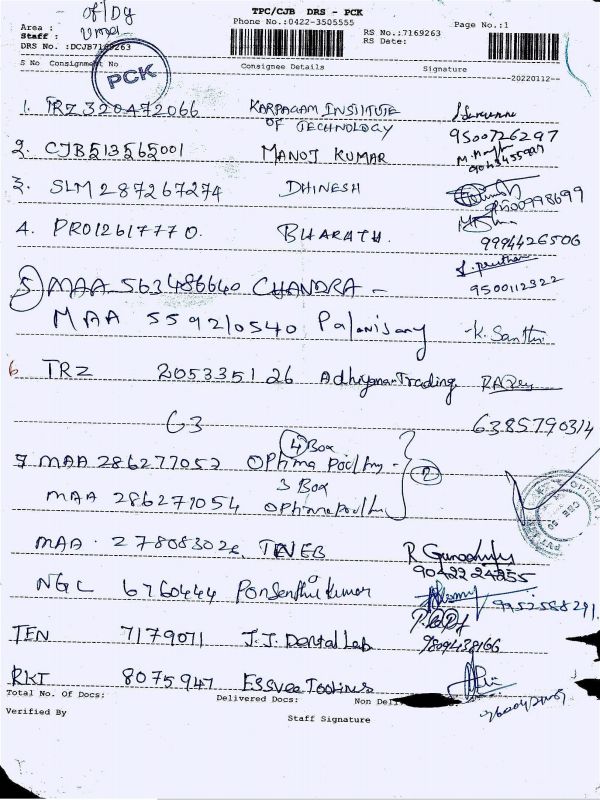 TPC/CJB DRS - PCK
Phone No.:0422-3505555
Page No.:1
Area :
Staff :
DRS No. :DCJB7169263
RS No.:7169263
RS Date:
S No Consignment No Consignee Details Signature
PCK
20220112
1. TRZ 320472066 KARPAGAM INSTITUTE
OF TECHNOLOGY
9500726297
2. CJB513565001 MANOJ KUMAR
3. SLM 287267274 DHINESH
9500998699
4. PRO12617770. BHARATH.
9994426506
5 MAA 563486640 CHANDRA -
9500112322
MAA 559210540 Palanisamy -K. Santhi
6 TRZ 205335126 Adhiyaman Trading
63 6385790314
4 Box
7 MAA 286277052 Optima Poultry - 2
3 Box
MAA 286271054 Optima poultry
MAA. 278083026 TNEB
9042224255
NGL 6760444 Ponsenthil Kumar
9952588291
TEN 7179071 J.J. Dental Lab 9809438166
RKT 8075947 Essvee Toolings
Total No. Of Docs: Delivered Docs: Non Deli
Verified By Staff Signature